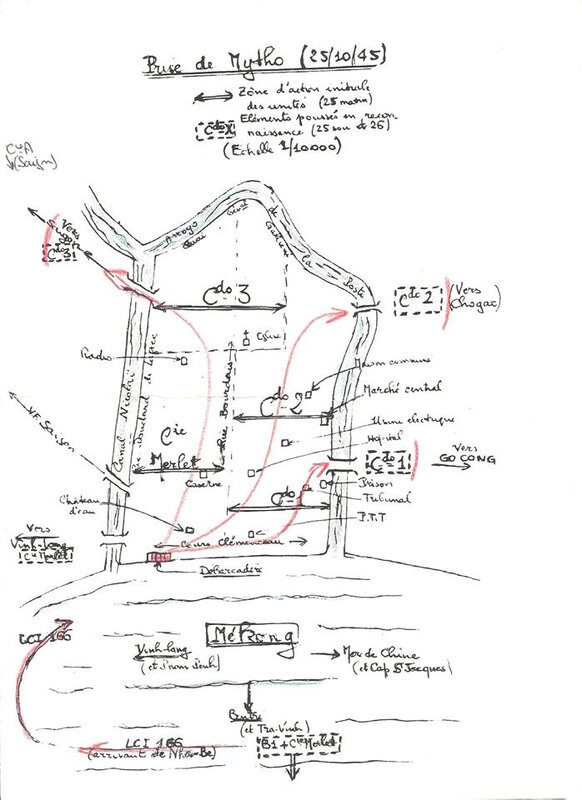 Prise de Mytho (25/10/45)
Zône d'action initiale
des unités (25 matin)
Cdo X
Eléments poussés en recon
naissance (25 soir et 26)
(Echelle 1/10000)
Vers
Saïgon
Cdo 31
Arroyo
de
la Poste
Quai
Cdo 3
Cdo 2
(Vers
Chogao)
Canal Nicolaï
Eglise
Radio
Rue Bourdais
Maison commune
Marché central
Cdo 2
Usine électrique
Hôpital
Cie
Merlet
VF Saïgon
Vers
GO CONG
Cdo 1
Caserne
Prison
Tribunal
Cdo 1
P.T.T
Château
d'eau
Cours Clémenceau
Vers
Vinh-Long
Cie Merlet
Débarcadère
LCI 166
Mékong
Vinh-Long
(et Pnom Penh)
Mer de Chine
(et Cap St Jacques)
Bentre
(et Travinh)
B1 + Cie Merlet
LCI 166
(arrivant de Nha-Be)